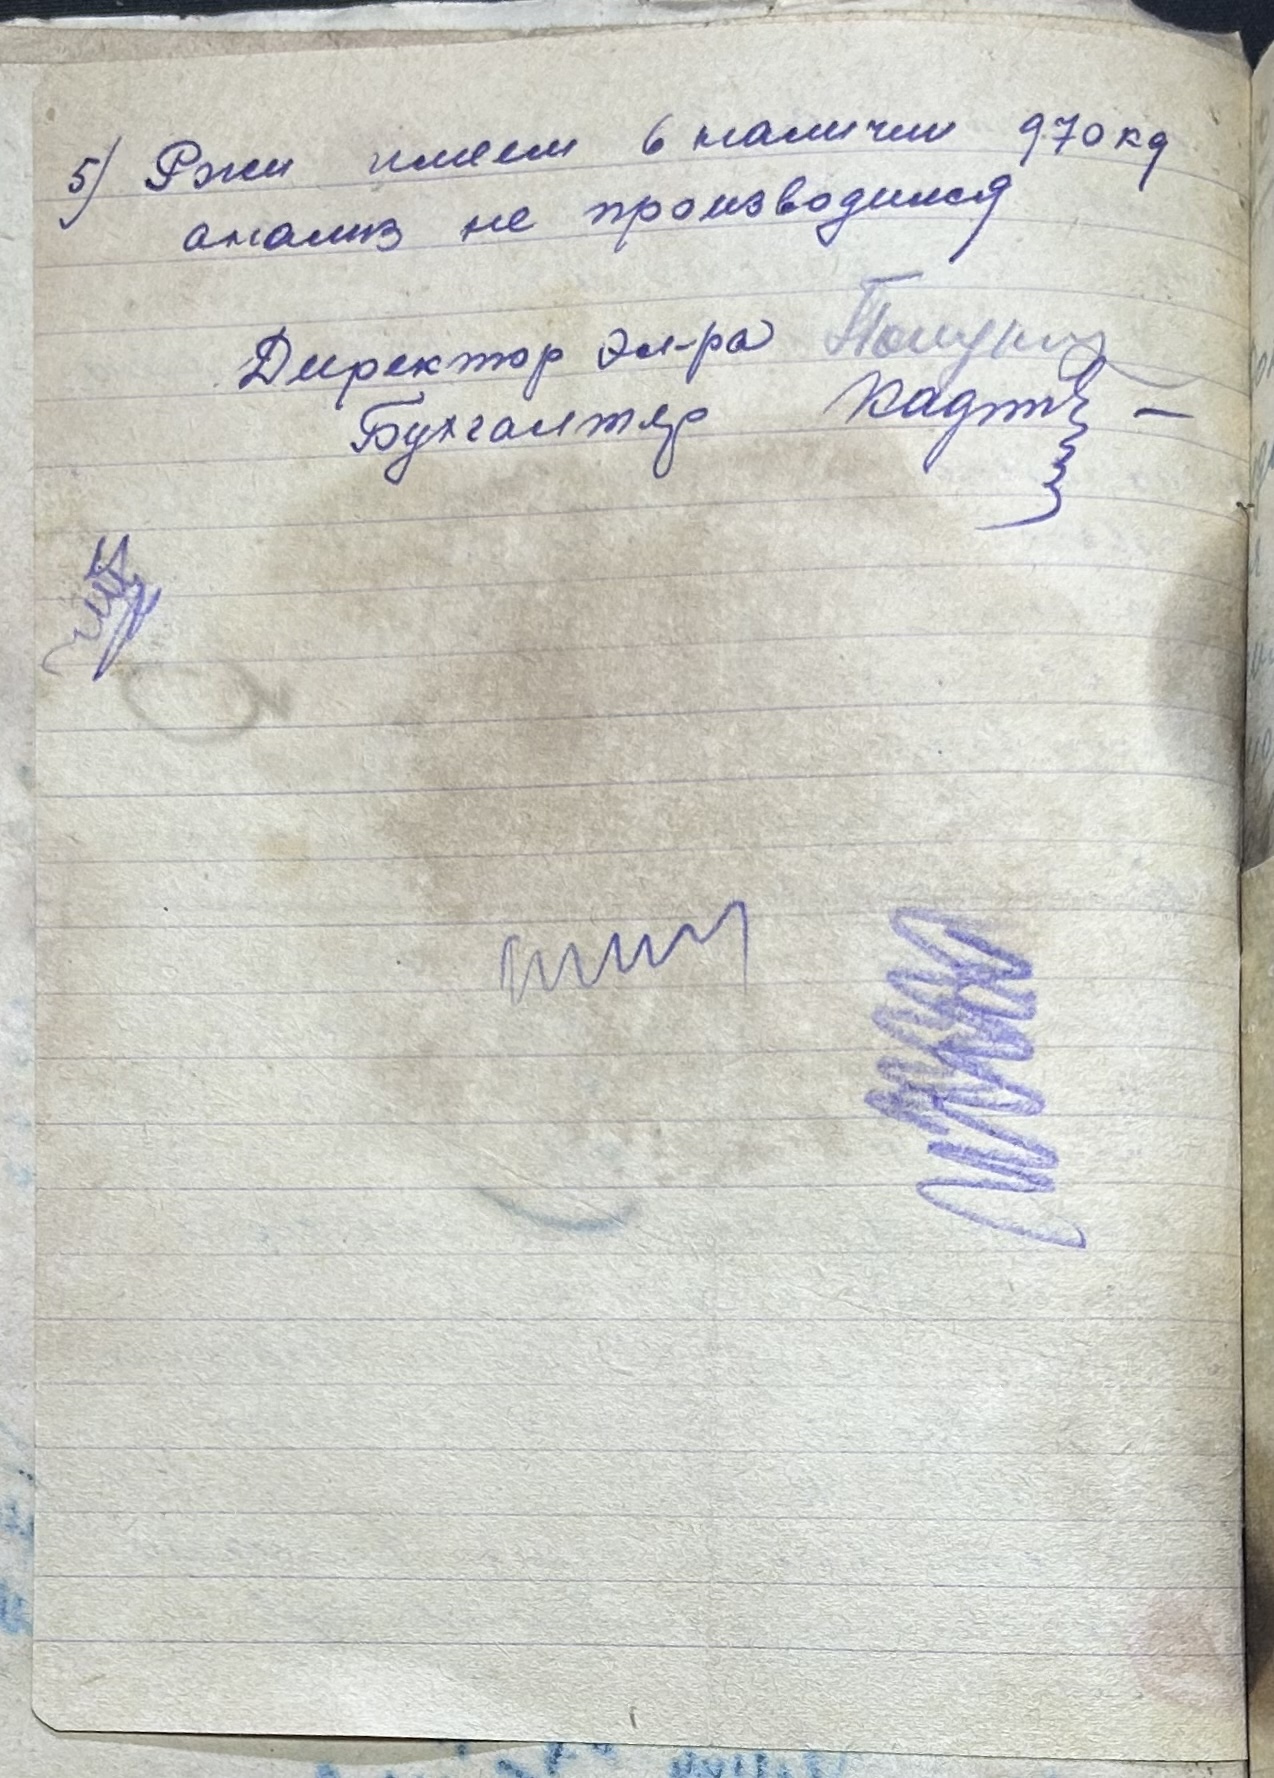 5) Ржи имеем в наличии 970 кг
анализ не производился
Директор эл-ра
Бухгалтер